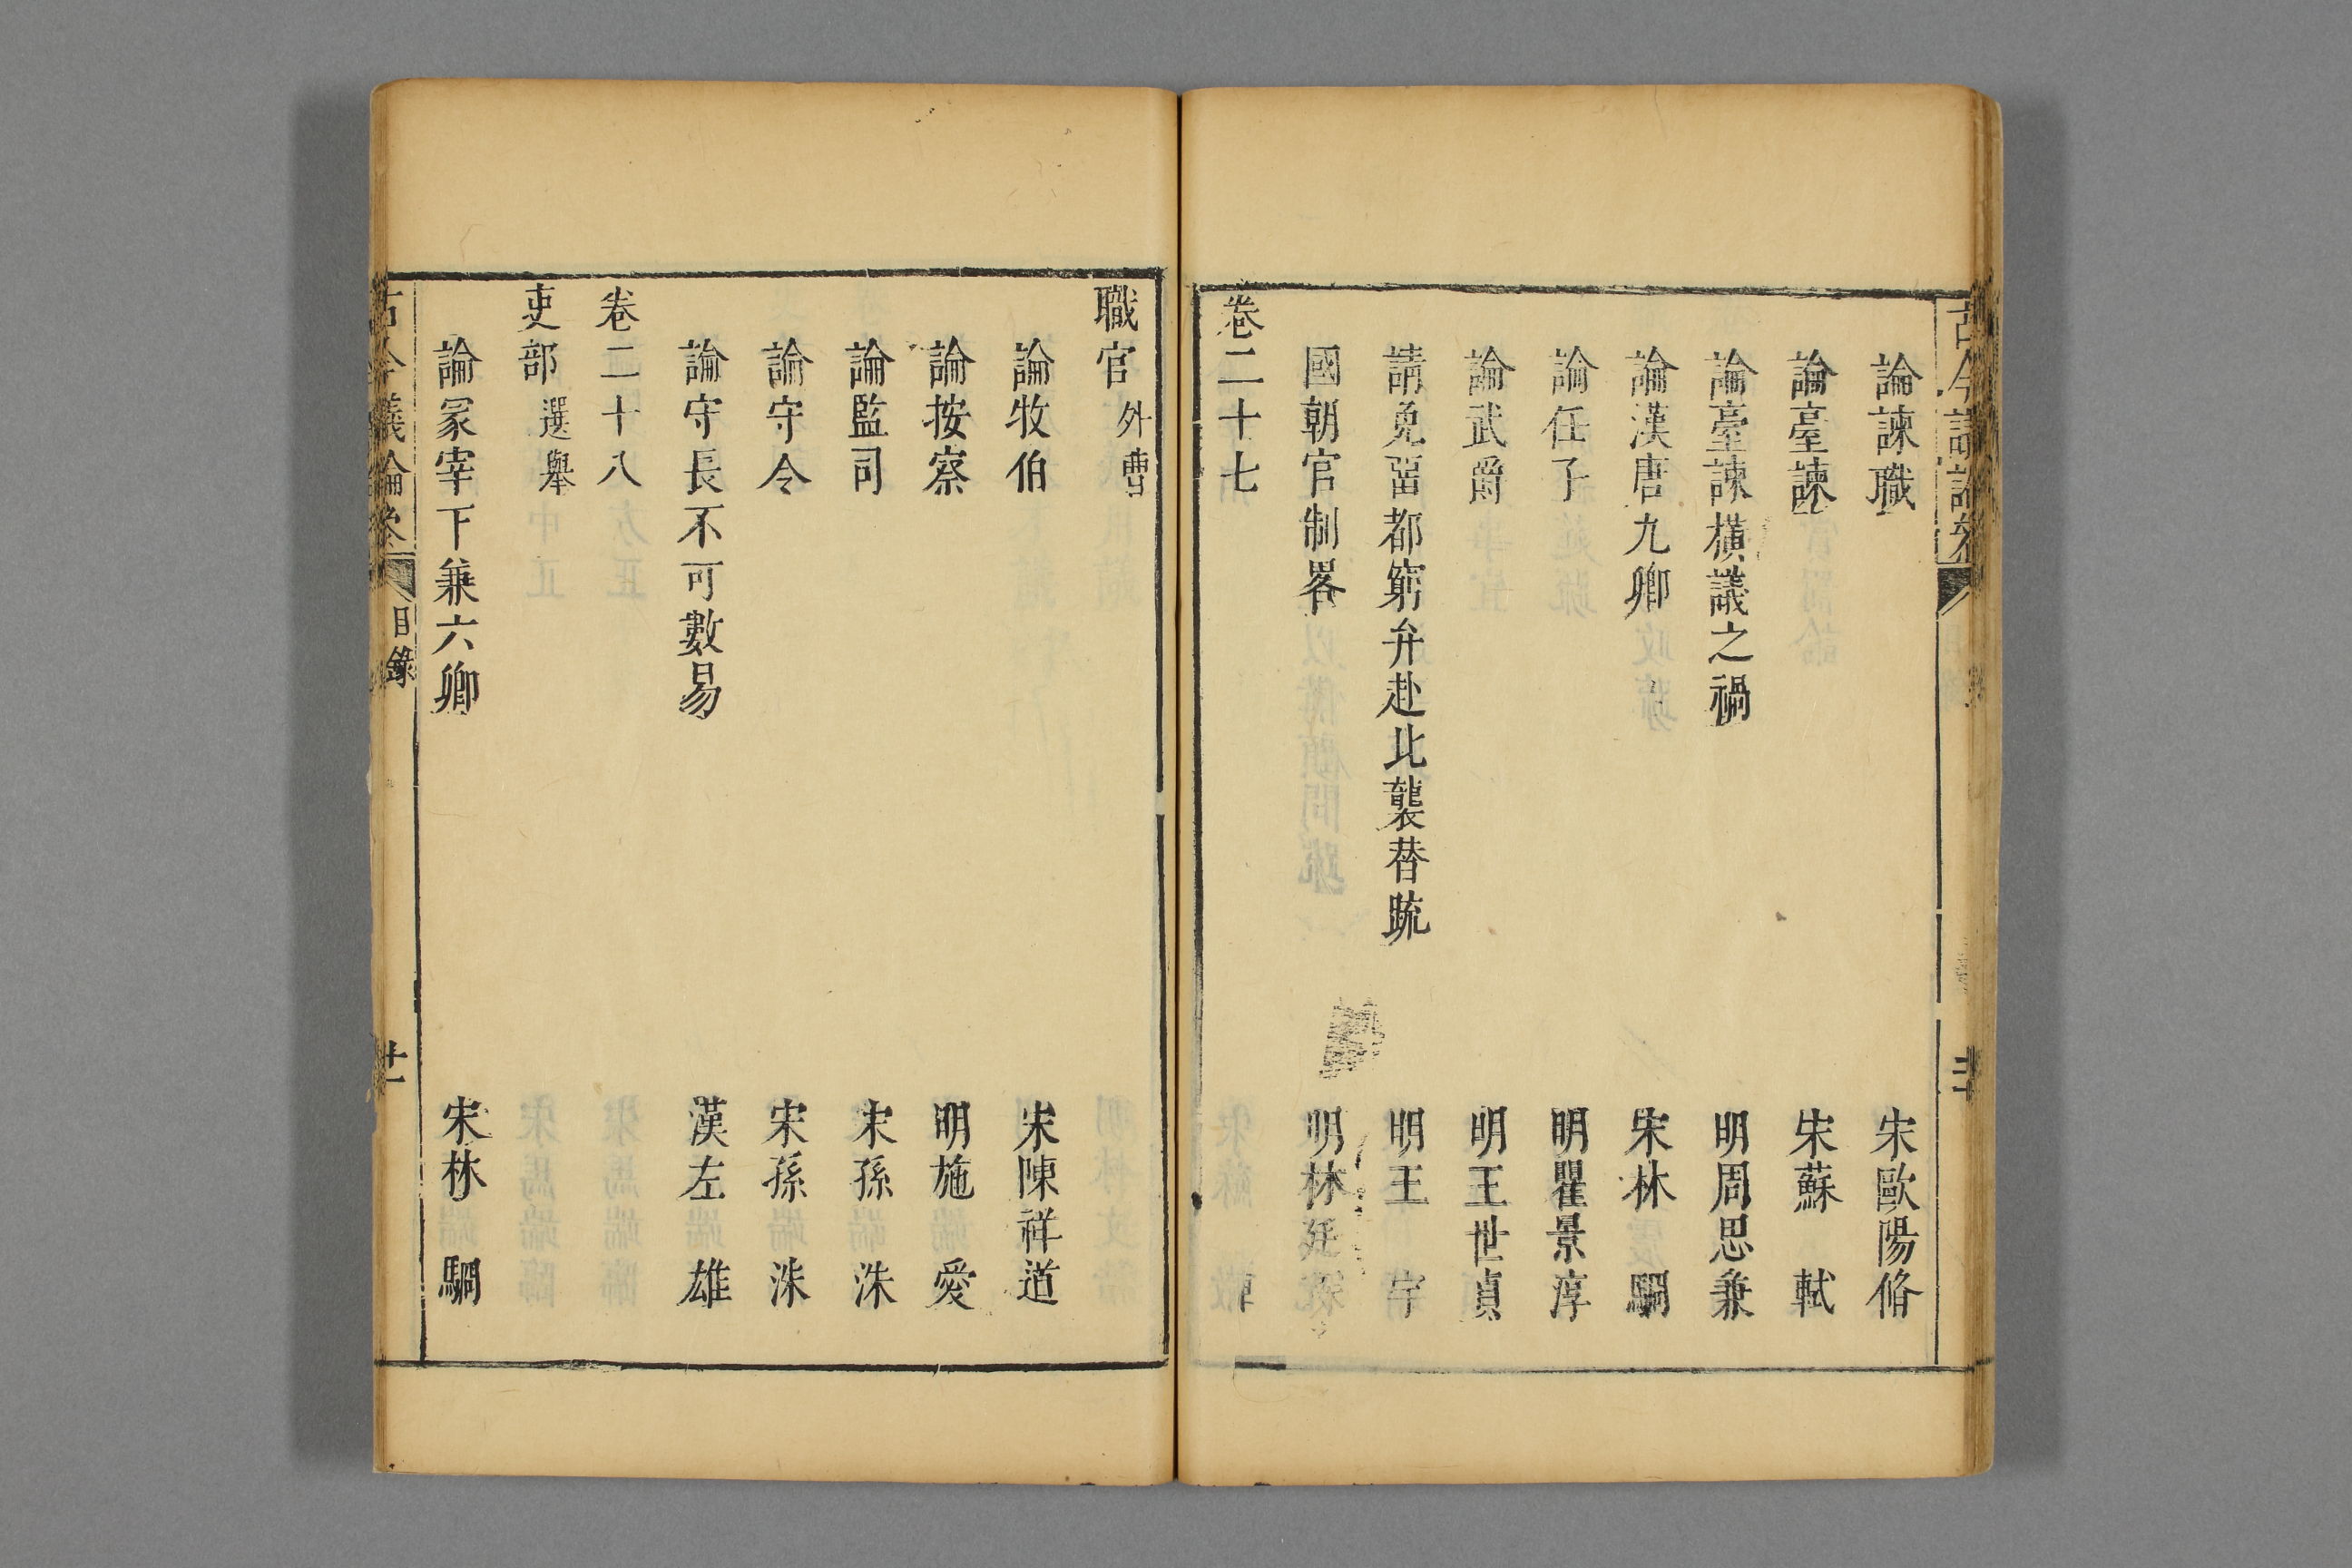 論諫職 宋歐陽脩
論臺諫 宋蘇 軾
論臺諫橫議之禍 明周思兼
論漢唐九卿 宋林 駉
論任子 明瞿景淳
論武爵 明王世貞
請免畱都窮弁赴北襲替疏 明王
國朝官制畧 明林廷
卷二十七
職官 外曹
論牧伯 宋陳祥道
論按察 明施 愛
論監司 宋孫 洙
論守令 宋孫 洙
論守長不可數易 漢左 雄
卷二十八
吏部 選舉
論冢宰下兼六卿 宋林 駉
古今議論參 目錄 廿一